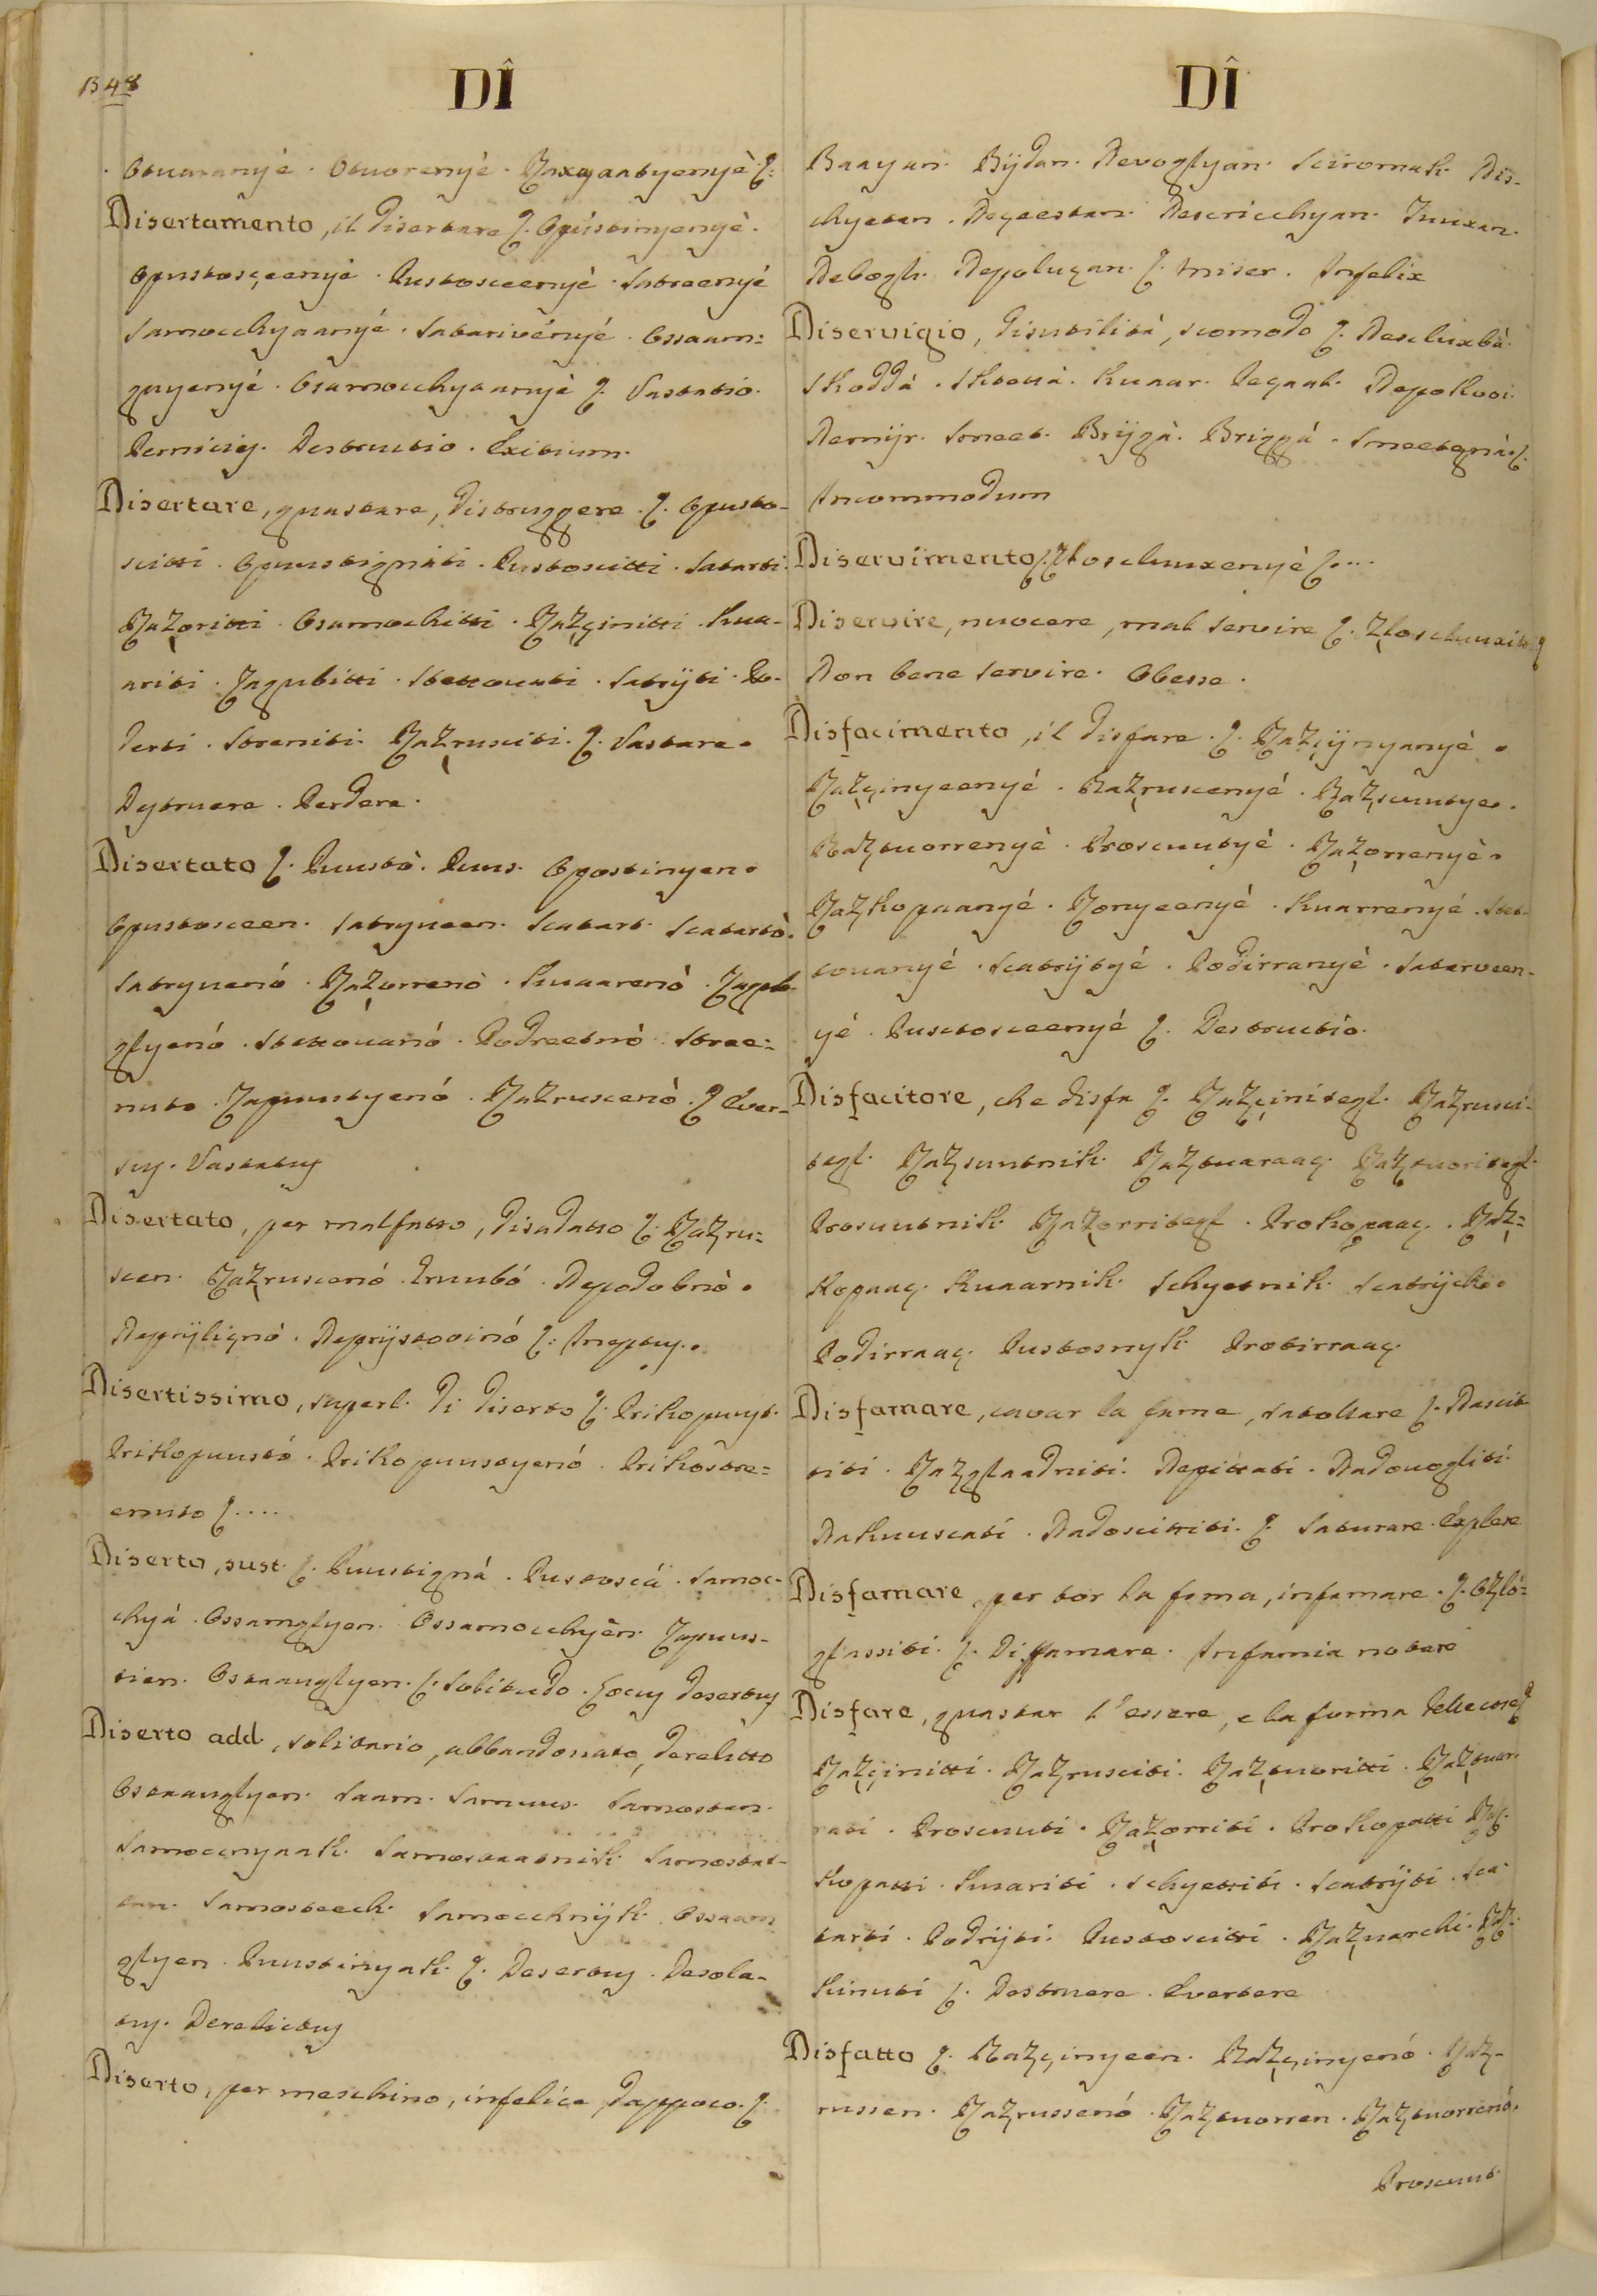 B48
DÎ
Otuaranyé. Otvorenyé. Razgaatyenyè ſ:
Disertamento, il disertare ſ. Opústinyenyè.
Opustosceenyé. Pustosceenyé. Satreenyé
Samocchyaanyé. Satarivényé. Ossaam:
gnyenyé. Osamocchyaanyè ſ. Vastatio.
Pernicies. Destructio. Exitium.
Disertare, guastare, distruggere. ſ. Opusto-
scitti. Opuustignìti. Pustoscitti. Satarti.
Razoritti. Osamochitti. Razcinitti. Kua-
ariti. Zagubitti. Stettovati. Satrÿti. Po-
derti. Streniti. Razrusciti. ſ. Vastare.
Destruere. Perdere.
Disertato ſ. Puustò. Puus. Opostinyen.
Opustosceen. Satryveen. Scatart. Scatartò.
Satryvenó. Razorrenò. Kuaarenò. Zagub-
glyenó. Stettóvanó. Podreetnò. Stree-
nuto. Zapuustyenó. Razruscenò. ſ Ever-
sus. Vastatus
Disertato, per malfatto, disadatto ſ. Razru-
scen. Razruscenó. Truubó. Nepodobnò.
Neprÿlignó. Neprÿstooinó ſ. Ineptus.
Disertissimo, superl. di diserto ſ. Prikopuust.
Prikopuustó. Prikopuustyenó. Prikostre-
enuto ſ....
Diserto, sust. ſ. Puustigná. Pustoscá. Samoc-
chyá. Ossamglyen. Ossamocchyèn. Zapuus-
tien. Ostaauglyen. ſ. Solitudo. Locus desertus
Diserto add. solitario, abbandonato, derelitto
Ostaauglyen. Saam. Samuus. Samostan.
Samocenyaak. Samostaatnik. Samostat-
tan. Samosteech. Samocchnÿk. Ossaam
glyen. Puustinyak. ſ. Desertus. Desola-
tus. Derelictus
Diserto, per meschino, infelice, dappoco. ſ.
DÎ
Baayan. Bÿdan. Nevoglyan. Sciromak. Nes-
chyetan. Neçeestan. Nescricchyan. Tuuxan.
Nebogh. Nepoluçan. ſ. Miser. Infelix
Diservigio, disutilità, scomodo ſ. Neslúxbà.
Skoddá. Sktetá. Kuaar. Pecaal. Nepokooi.
Nemÿr. Smeet. Brÿgà. Briggá. Smeetgná. ſ.
Incommodum
Diservimento ſ. Zlosluuxenyè ſ....
Diservire, nuocere, mal servire ſ. Zlosluuxiti ſ
Non bene servire. Obesse.
Disfacimento, il disfare. ſ. Razçÿnyanyè.
Razçinyeenyé. Razruscenyé. Razscuutye.
Raztuorrenyè. Proscuutyé. Razorrenyè.
Razkopaanyé. Zonyeenyé. Kuarrenyé. Stet-
tovanyé. Scatrÿtyé. Podirranyè. Satarveen-
yé. Pusctosceenyé ſ. Destructio.
Disfacitore, che disfa ſ. Razçinitegl. Razrusci-
tegl. Razsuutnik. Raztuaraaç. Raztuoritegl.
Prosuutnik. Razorritegl. Prokopaaç. Raz-
kopaaç. Kuaarnik. Schyetnik. Scatrÿcki.
Podirraaç. Pustosnyk. Protirraaç.
Disfamare, cavar la fame, satollare ſ. Nascit
titi. Razglaadniti. Nepittati. Nadovogliti.
Nakuuscati. Nadoscittiti. ſ. Saturare. Explere
Disfamare, per tor la fama, infamare. ſ. Ozlo-
glassiti. ſ. Diffamare. Infamia notare
Disfare, guastar l'essere, e la forma delle cose ſ
Razçinitti. Razrusciti. Raztuoritti. Raztuar.
rati. Proscuuti. Razorriti. Prokopatti Raz-
kopatti. Kuariti. Schyettiti. Scatrÿti. Sca-
tarti. Podrÿti. Pustoscitti. Razuarchi. Raz-
kinuti ſ. Destruere. Evertere
Disfatto ſ. Razçinyeen. Razçinyenó. Raz-
russen. Razrussenó. Raztuorren. Raztuorrenó.
Proscuut.